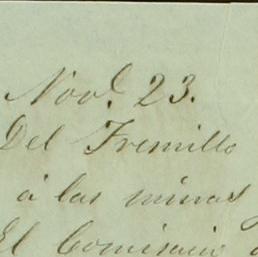 Nov.e 23.
Del Fremillo
á las minas
El Comisario